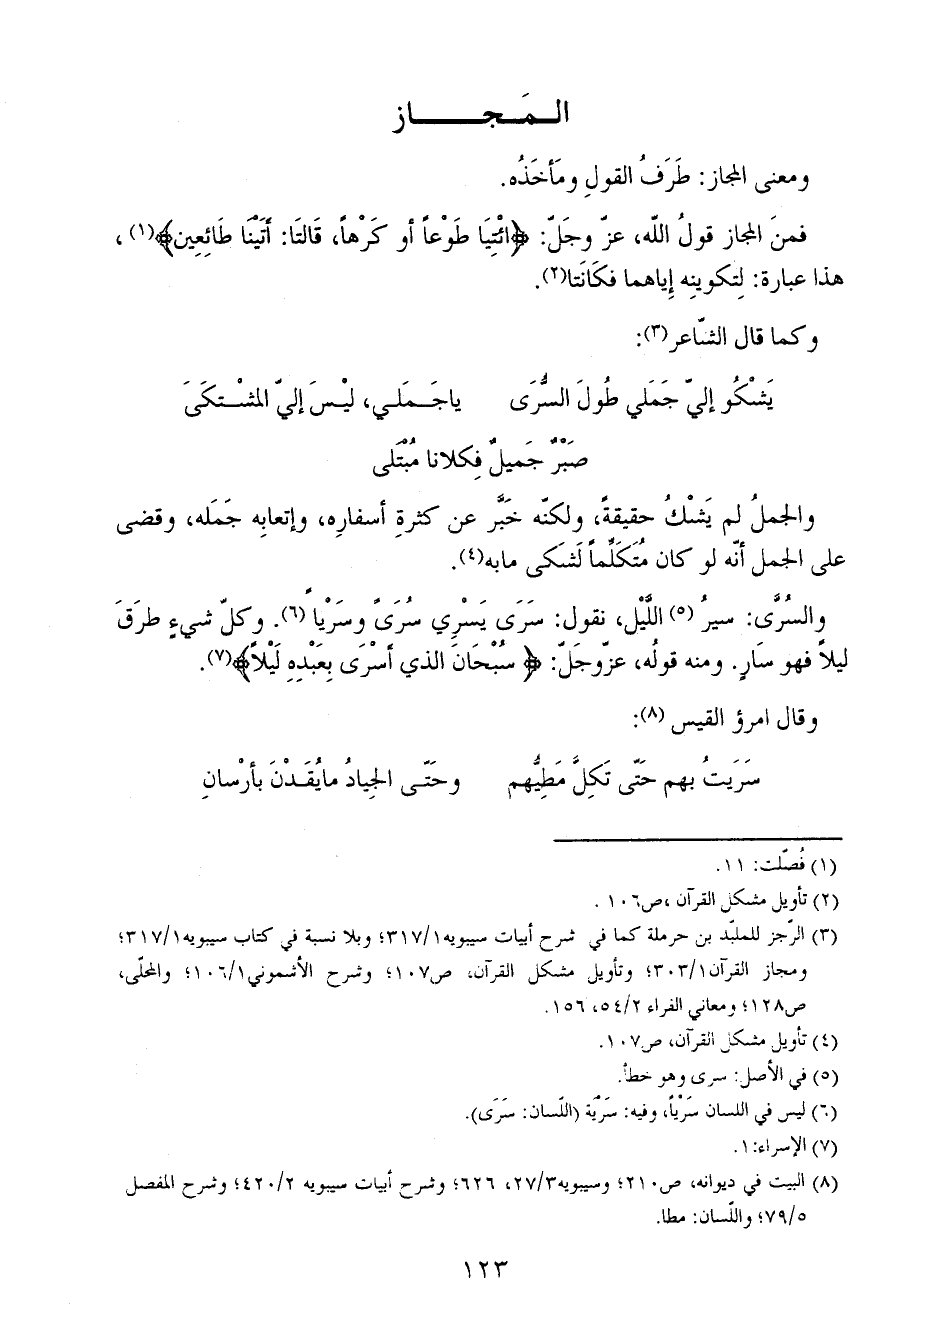 المَجــاز
ومعنى المجاز: طَرَفُ القولِ ومَأخَذُه.
فمنَ المجاز قولُ الله، عزّ وجَلّ: ﴿ائْتِيَا طَوْعاً أو كَرْهاً، قَالتَا: أَتَيْنَا طَائِعِين﴾(١)،
هذا عبارة: لِتكوينِه إياهما فكَانَتا(٢).
وكما قال الشّاعر(٣):
يَشْكُو إليّ جَمَلي طُولَ السُّرَى ياجَـمَلـي، ليْـسَ إليّ المشْـتكَىَ
صَبْرٌ جَميلٌ فِكلانا مُبْتَلى
والجملُ لم يَشْكُ حقيقةً، ولكنّه خَبَّر عن كثرةِ أسفارِه، وإتعابِه جَمَله، وقضى
على الجمل أنّه لو كان مُتَكَلِّماً لَشَكى مابه(٤).
والسُّرَى: سيرُ (٥) اللَّيْل، نقول: سَرَى يَسْرِي سُرَىً وسَرْياً (٦). وكلّ شيءٍ طرَقَ
ليلاً فهو سَارٍ. ومنه قولُه، عزّوجَلّ: ﴿ سُبْحَانَ الذي أسْرَى بِعَبْدِهِ لَيْلاً﴾(٧).
وقال امرؤ القيس (٨):
سَرَيتُ بهم حَتّى تَكِلَّ مَطِيُّهم وحَتّـى الجِيادُ مايُقَـدْنَ بأرْسانِ
(١) فُصّلت: ١١.
(٢) تأويل مشكل القرآن ،ص١٠٦ .
(٣) الرّجز للملبّد بن حرملة كما في شرح أبيات سيبويه٣١٧/١؛ وبلا نسبة في كتاب سيبويه٣١٧/١؛
ومجاز القرآن٣٠٣/١؛ وتأويل مشكل القرآن، ص١٠٧؛ وشرح الأشموني١٠٦/١؛ والمحلّى،
ص١٢٨؛ ومعاني الفراء ٥٤/٢، ١٥٦.
(٤) تأويل مشكل القرآن، ص١٠٧.
(٥) في الأصل: سرى وهو خطأ.
(٦) ليس في اللسان سَرْياً، وفيه: سَرْيَة (اللّسان: سَرَى).
(٧) الإسراء:١.
(٨) البيت في ديوانه، ص٢١٠؛ وسيبويه٢٧/٣، ٦٢٦؛ وشرح أبيات سيبويه ٤٢٠/٢؛ وشرح المفصل
٧٩/٥؛ واللّسان: مطا.
١٢٣